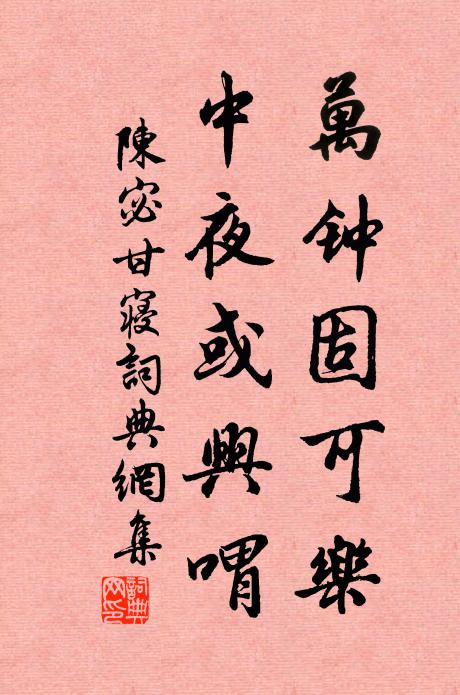 萬钟固可樂
中夜或興喟
陳宓甘寢詞典網集
詞典
网印